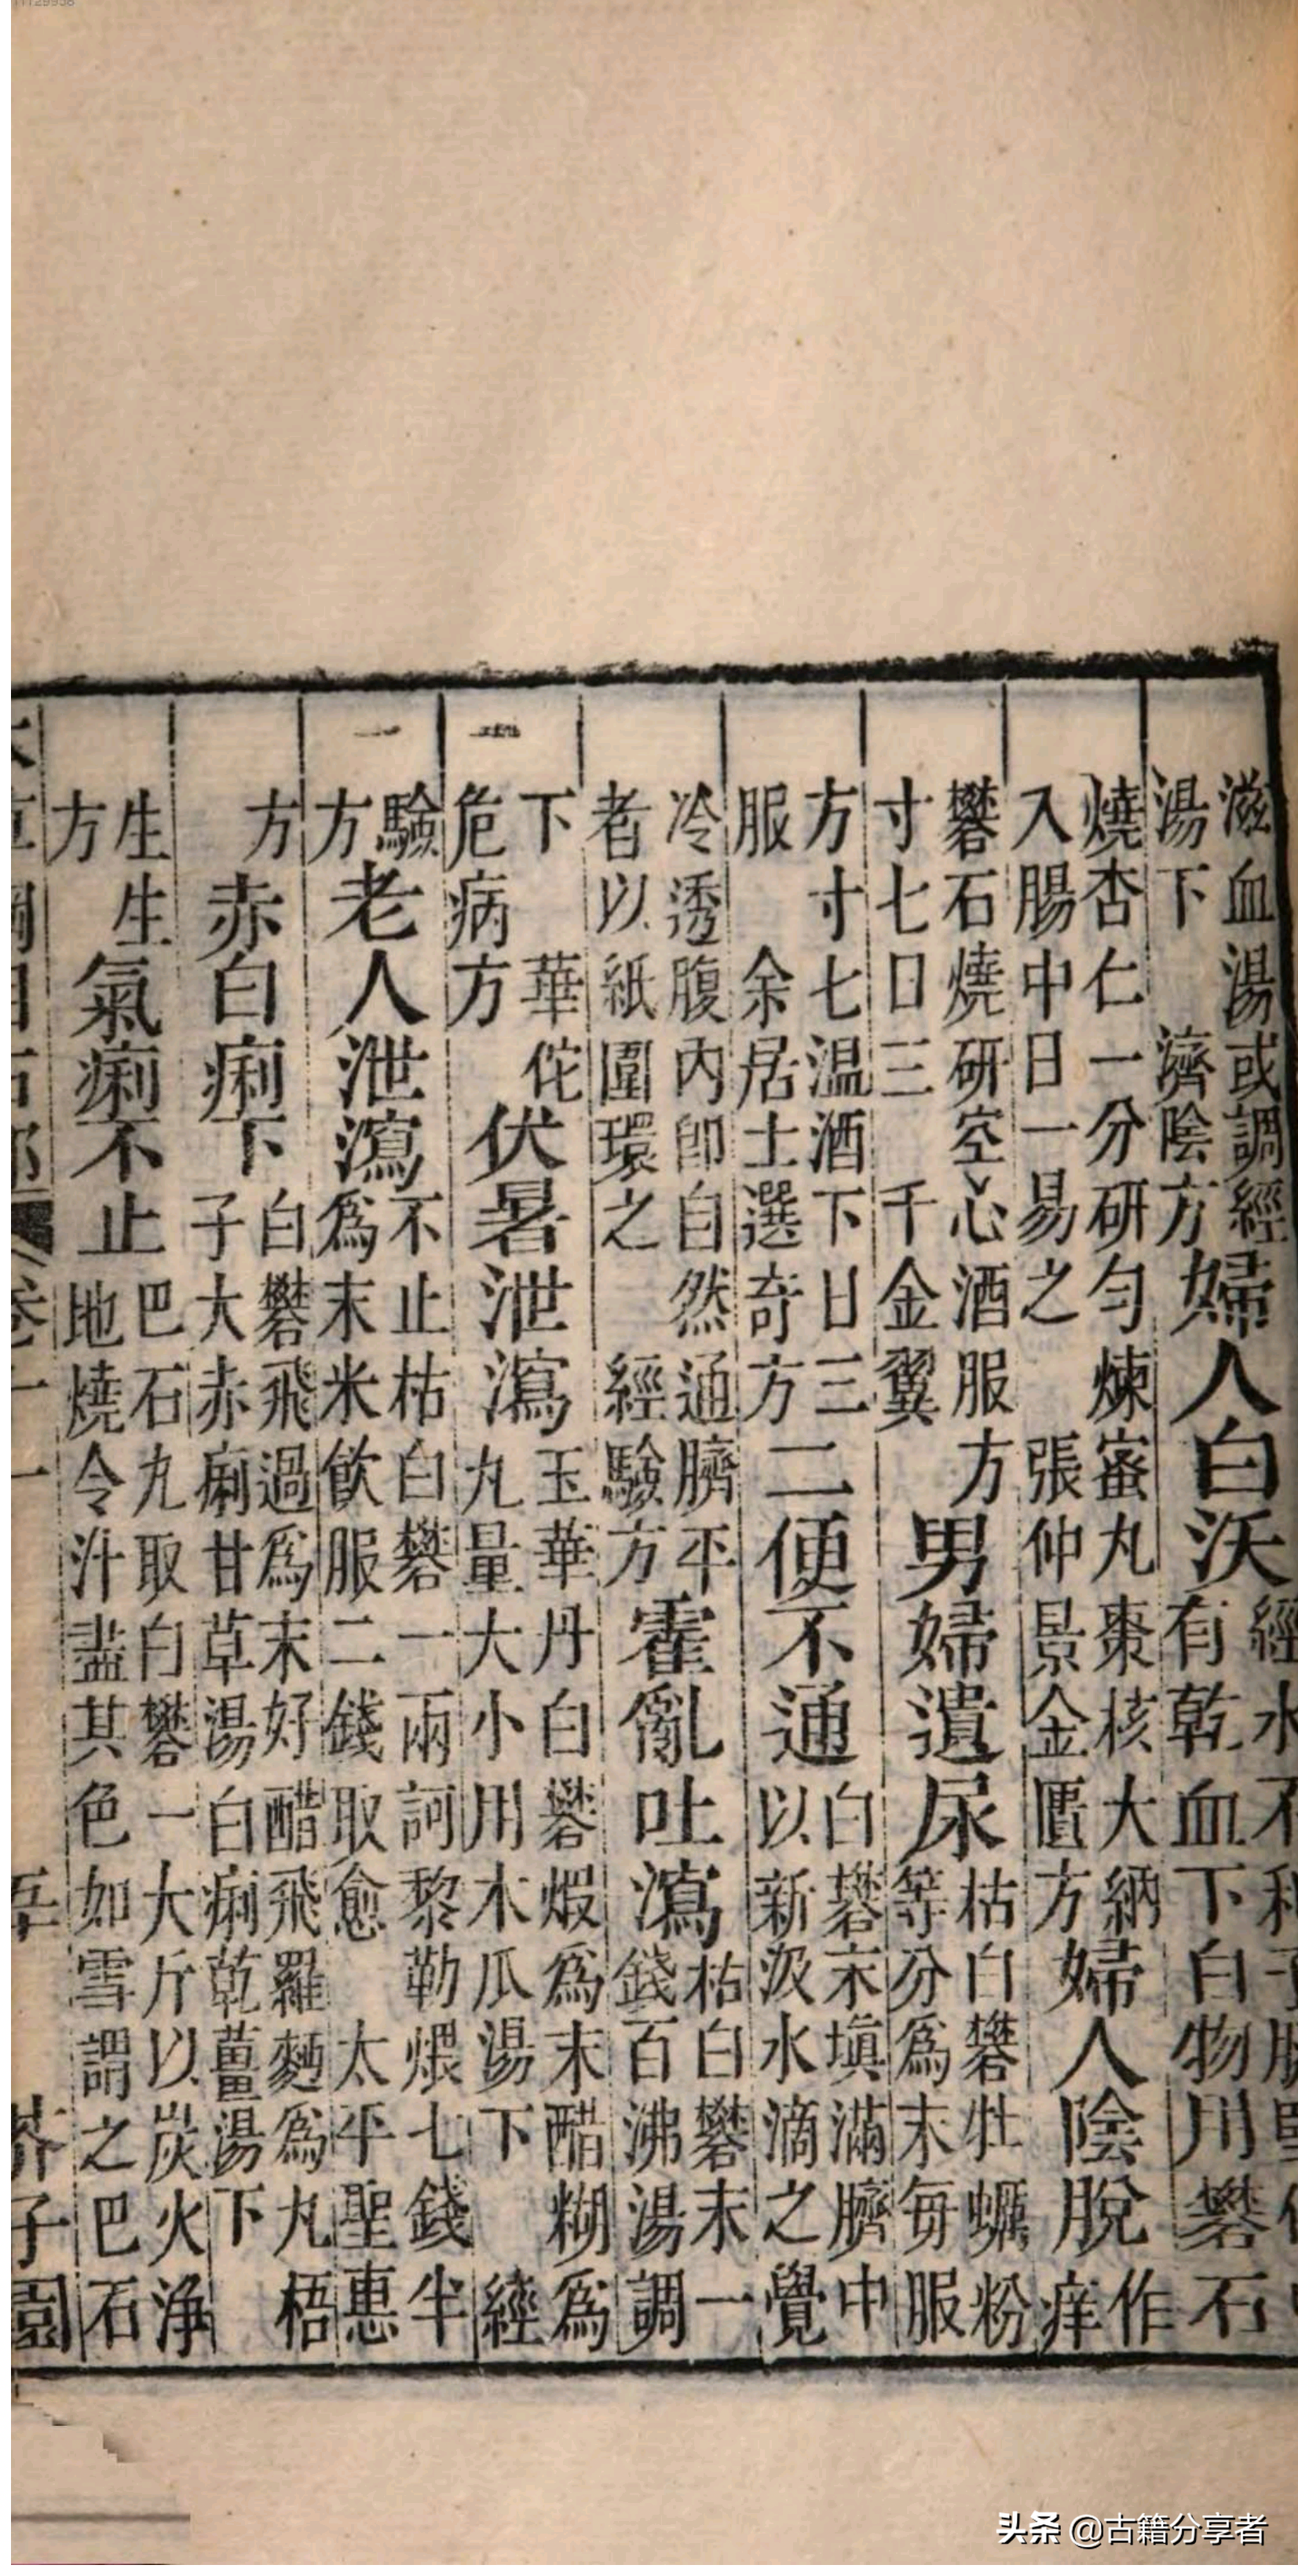 滋血湯或調經
湯下　濟陰方
婦人白沃
經水不利子
有乾血下白物用礬石
燒杏仁一分研勻煉蜜丸棗核大納
入腸中日一易之　張仲景金匱方
婦人陰脫
作
痒
礬石燒研空心酒服方
寸七日三　千金翼
男婦遺尿
枯白礬牡蠣粉
等分爲末每服
方寸七温酒下日三
服　余居士選奇方
二便不通
白礬末填滿臍中
以新汲水滴之覺
冷透腹內卽自然通臍平
者以紙圍環之　經驗方
霍亂吐瀉
枯白礬末一
錢百沸湯調
下　華佗
危病方
伏暑泄瀉
玉華丹白礬煆爲末醋糊爲
丸量大小用木瓜湯下　經
驗
方
老人泄瀉
不止枯白礬一兩訶黎勒煨七錢半
爲末米飲服二錢取愈　太平聖惠
方
赤白痢下
白礬飛過爲末好醋飛羅麪爲丸梧
子大赤痢甘草湯白痢乾薑湯下
生生
方
氣痢不止
巴石丸取白礬一大斤以炭火淨
地燒令汁盡其色如雪謂之巴石
芥子園
头条 @古籍分享者